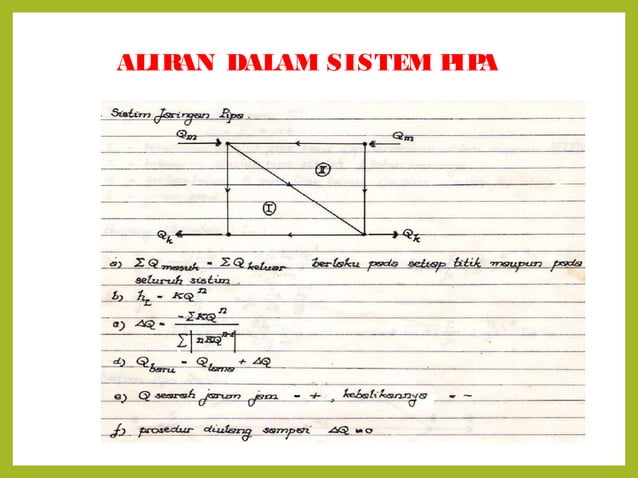 ALIRAN DALAM SISTEM PIPA
Sistim Jaringan Pipa.
Qm Qm
II
I
Qk Qk
a) ΣQ masuk = ΣQ keluar, berlaku pada setiap titik maupun pada
seluruh sistim.
b) hL = KQ^n
c) ΔQ = -ΣKQ^n / Σ|nKQ^n-1|
d) Qbaru = Qlama + ΔQ
e) Q searah jarum jam = +, kebalikannya = -
f) prosedur diulang sampai ΔQ ≈ 0